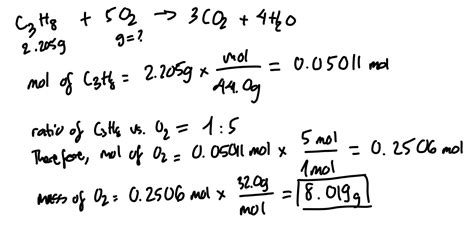 C3H8 + 5O2 → 3CO2 + 4H2O
2.205g g=?
mol of C3H8 = 2.205g × mol/44.0g = 0.05011 mol
ratio of C3H8 vs. O2 = 1:5
Therefore, mol of O2 = 0.05011 mol × 5 mol/1mol = 0.2506 mol
mass of O2: 0.2506 mol × 32.0g/mol = 8.019g